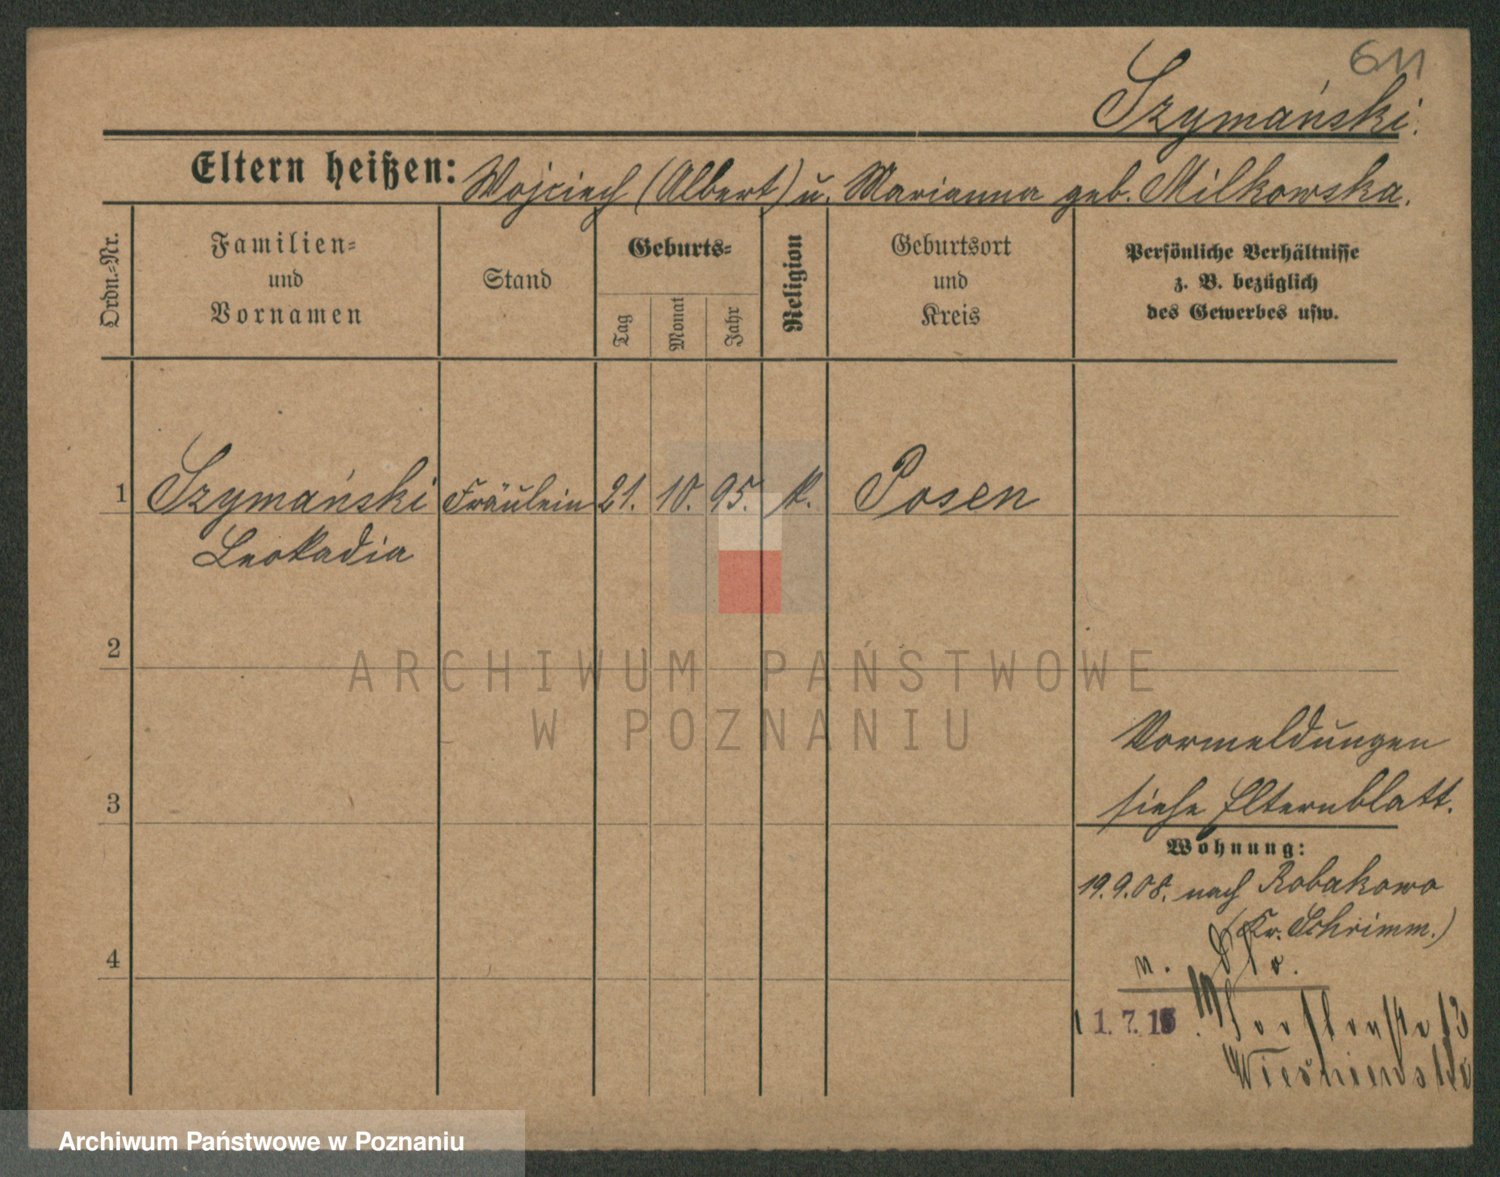 611
Szymański.
Eltern heißen: Wojciech (Albert) u. Marianna geb. Milkowska.
Ordn.-Nr.
Familien-
und
Vornamen
Stand
Geburts-
Tag
Monat
Jahr
Religion
Geburtsort
und
Kreis
Persönliche Verhältnisse
z. B. bezüglich
des Gewerbes usw.
1 Szymański Fräulein 21. 10. 95. k. Posen
Leokadia
2
ARCHIWUM PAŃSTWOWE
W POZNANIU
Vormeldungen
3 siehe Elternblatt.
Wohnung:
19.9.08. nach Robakowo
(Kr. Schrimm.)
4
n.
1.7.15
Archiwum Państwowe w Poznaniu